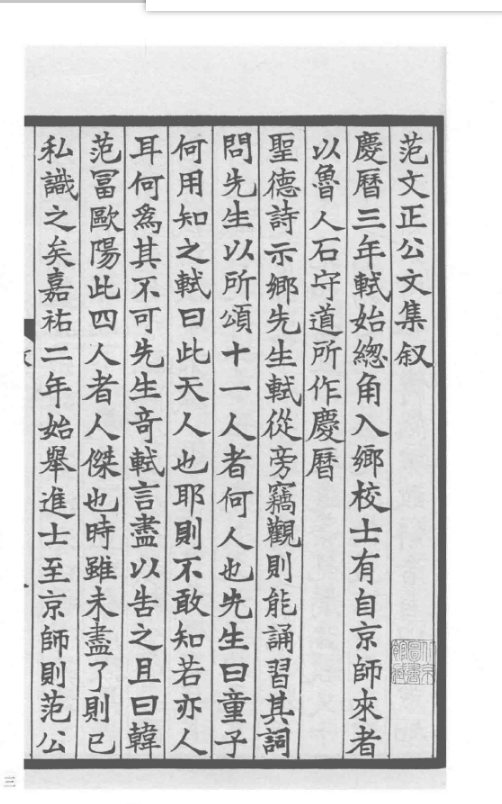 范文正公文集叙
慶曆三年軾始緫角入鄉校士有自京師來者
以魯人石守道所作慶曆
聖德詩示鄉先生軾從旁竊觀則能誦習其詞
問先生以所頌十一人者何人也先生曰童子
何用知之軾曰此天人也耶則不敢知若亦人
耳何爲其不可先生竒軾言盡以告之且曰韓
范冨歐陽此四人者人傑也時雖未盡了則已
私識之矣嘉祐二年始舉進士至京師則范公
三